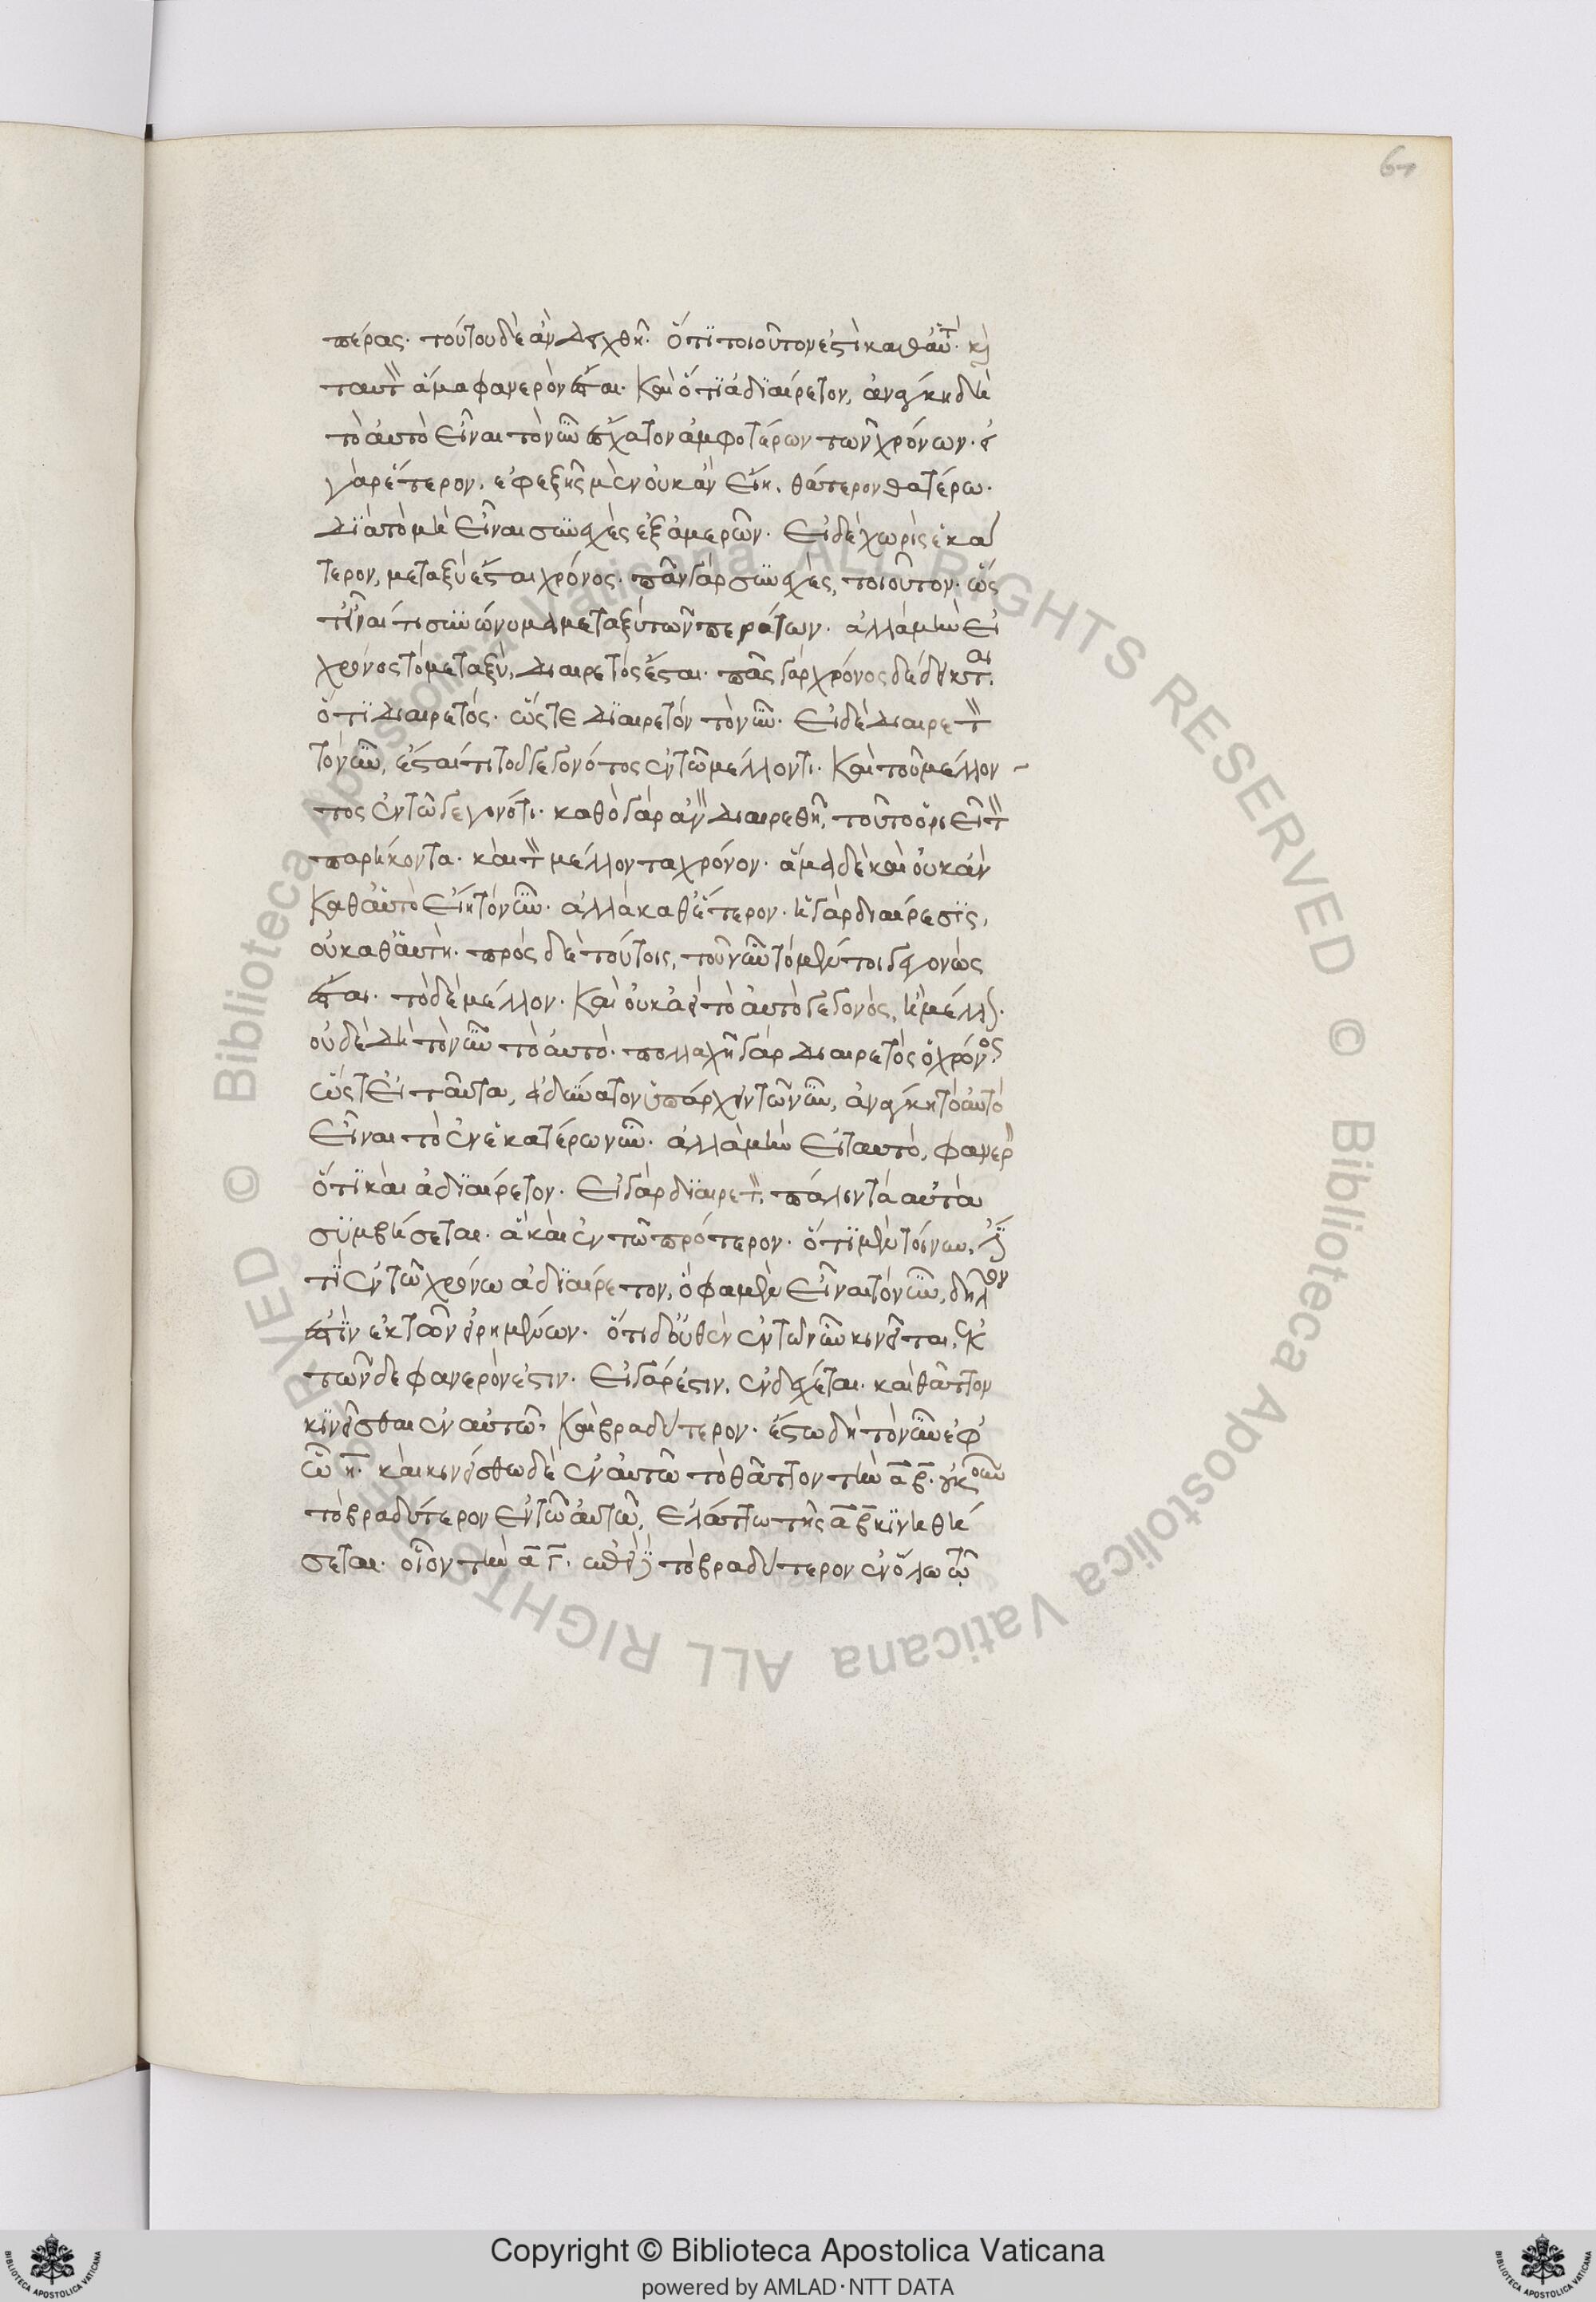 61
πέρας· τούτου δὲ ἂν δειχθῇ ὅτι τοιοῦτον ἐστὶ καθ αὑτὸ· καὶ
ταυτὸν ἅμα φανερὸν ἔσται· καὶ ὅτι ἀδιαίρετον, ἀνάγκη δὴ
τὸ αὐτὸ εἶναι τὸ νῦν ἔσχατον ἀμφοτέρων τῶν χρόνων· εἰ
γὰρ ἕτερον, ἐφεξῆς μὲν οὐκ ἂν εἴη, θάτερον θατέρω·
διὰ τὸ μὴ εἶναι συνεχὲς ἐξ ἀμερῶν· εἰ δὲ χωρὶς ἑκά
τερον, μεταξὺ ἔσται χρόνος· πᾶν γὰρ συνεχὲς, τοιοῦτον· ὥς
τ εἶναί τι συνώνυμον μεταξὺ τῶν περάτων· ἀλλὰ μὴν εἰ
χρόνος τὸ μεταξὺ, διαιρετὸς ἔσται· πᾶς γὰρ χρόνος δέδεικται
ὅτι διαιρετός· ὥστε διαιρετὸν τὸ νῦν· εἰ δὲ διαιρετὸν
τὸ νῦν, ἔσται τι τοῦ γεγονότος ἐν τῶ μέλλοντι· καὶ τοῦ μέλλον
τος ἐν τῶ γεγονότι· καθ ὃ γὰρ ἂν διαιρεθῇ, τοῦτο ὁριεῖ τὸν
παρήκοντα· καὶ τὸν μέλλοντα χρόνον· ἅμα δὲ καὶ οὐκ ἂν
καθ αὑτὸ εἴη τὸ νῦν· ἀλλὰ καθ ἕτερον· ἡ γὰρ διαίρεσις,
οὐ καθ αὑτὴ· πρὸς δὲ τούτοις, τοῦ νῦν τὸ μέν τοι γεγονὼς
ἔσται· τὸ δὲ μέλλον· καὶ οὐκ ἀεὶ τὸ αὐτὸ γεγονὸς, ἢ μέλλον·
οὐδὲ δὴ τὸ νῦν τὸ αὐτὸ· πολλαχῇ γὰρ διαιρετὸς ὁ χρόνος
ὥστ εἰ ταῦτα, ἀδύνατον ὑπάρχειν τῶ νῦν, ἀνάγκη τὸ αὐτὸ
εἶναι τὸ ἐν ἑκατέρω νῦν· ἀλλὰ μὴν εἰ ταυτὸ, φανερὸν
ὅτι καὶ ἀδιαίρετον· εἰ γὰρ διαιρετὸν, πάλιν τὰ αὐτὰ
συμβήσεται· ἃ καὶ ἐν τῶ πρότερον· ὅτι μὲν τοίνυν, ἔστι
τι ἐν τῶ χρόνω ἀδιαίρετον, ὅ φαμεν εἶναι τὸ νῦν, δῆλον
ἐστὶν ἐκ τῶν εἰρημένων· ὅτι δ οὐθὲν ἐν τῶ νῦν κινεῖται, ἐκ
τῶνδε φανερόν ἐστιν· εἰ γὰρ ἔστιν, ἐνδέχεται· καὶ θᾶττον
κινεῖσθαι ἐν αὐτῶ, καὶ βραδύτερον· ἔστω δὴ τὸ νῦν ἐφ
ὧ ν· καὶ κινείσθω δὲ ἐν αὐτῶ τὸ θᾶττον τὴν α β· οὐκοῦν
τὸ βραδύτερον ἐν τῶ αὐτῶ, ἐλάττω τῆς α β κινηθή
σεται· οἷον τὴν α γ· τὸ βραδύτερον ἐν ὅλω τῶ